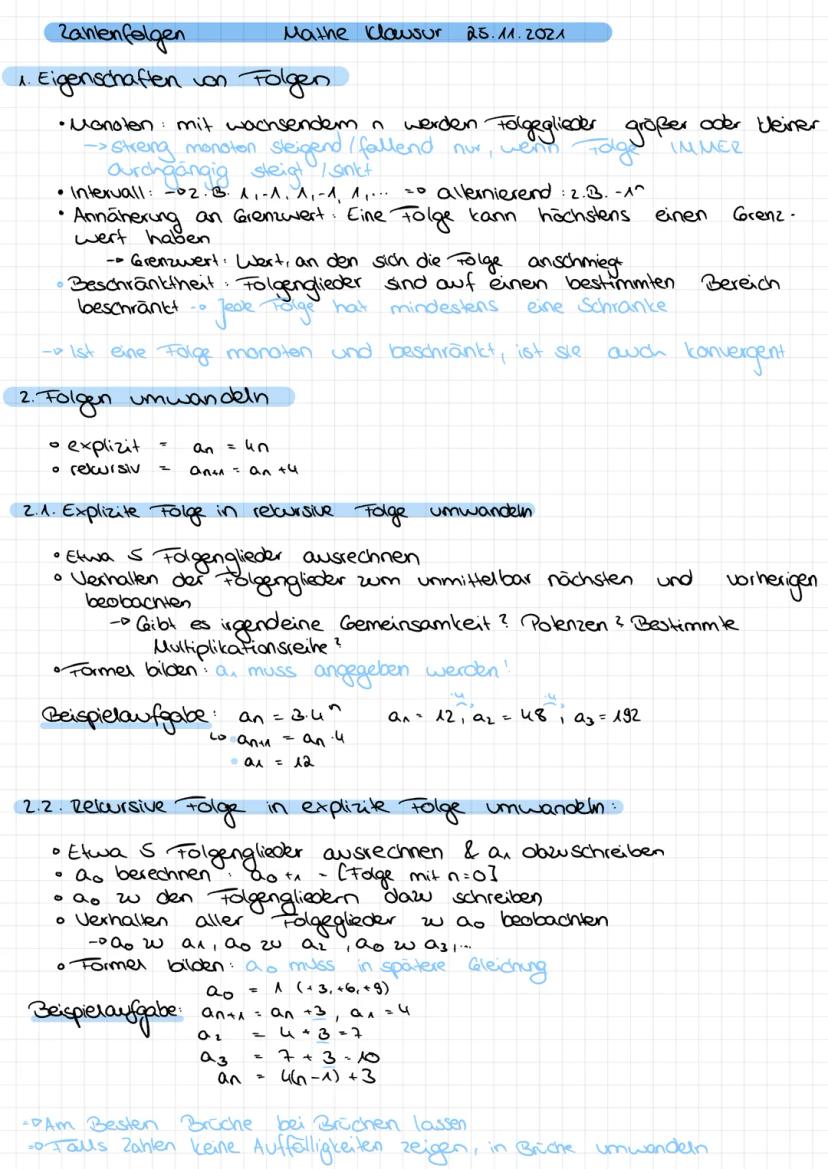 Zahlenfolgen Mathe Klausur 25.11.2021
1. Eigenschaften von Folgen
• Monoton: mit wachsendem n werden Folgeglieder größer oder kleiner
-> streng monoton steigend / fallend nur, wenn Folge IMMER
durchgängig steigt / sinkt
• Intervall: -> z.B. 1, -1, 1, -1, 1, ... => alternierend: z.B. -1ⁿ
• Annäherung an Grenzwert: Eine Folge kann höchstens einen Grenz-
wert haben
-> Grenzwert: Wert, an den sich die Folge anschmiegt
• Beschränktheit: Folgenglieder sind auf einen bestimmten Bereich
beschränkt -> Jede Folge hat mindestens eine Schranke
-> Ist eine Folge monoton und beschränkt, ist sie auch konvergent
2. Folgen umwandeln
• explizit = an = 4n
• rekursiv = an+1 = an +4
2.1. Explizite Folge in rekursive Folge umwandeln
• Etwa 5 Folgenglieder ausrechnen
• Verhalten der Folgenglieder zum unmittelbar nächsten und vorherigen
beobachten
-> Gibt es irgendeine Gemeinsamkeit? Potenzen? Bestimmte
Multiplikationsreihe?
• Formel bilden: a1 muss angegeben werden!
·4 ·4
Beispielaufgabe: an = 3·4ⁿ a1 = 12, a2 = 48, a3 = 192
↳ • an+1 = an ·4
• a1 = 12
2.2. Rekursive Folge in explizite Folge umwandeln:
• Etwa 5 Folgenglieder ausrechnen & a1 abzuschreiben
• a0 berechnen: a0+1 - [Folge mit n=0]
• a0 zu den Folgengliedern dazu schreiben
• Verhalten aller Folgeglieder zu a0 beobachten
-> a0 zu a1, a0 zu a2, a0 zu a3, ...
• Formel bilden: a0 muss in spätere Gleichung
a0 = 1 (+3, +6, +9)
Beispielaufgabe: an+1 = an +3, a1 = 4
a2 = 4 + 3 = 7
a3 = 7 + 3 = 10
an = 4(n-1) +3
=> Am Besten Brüche bei Brüchen lassen
=> Falls Zahlen keine Auffälligkeiten zeigen, in Brüche umwandeln